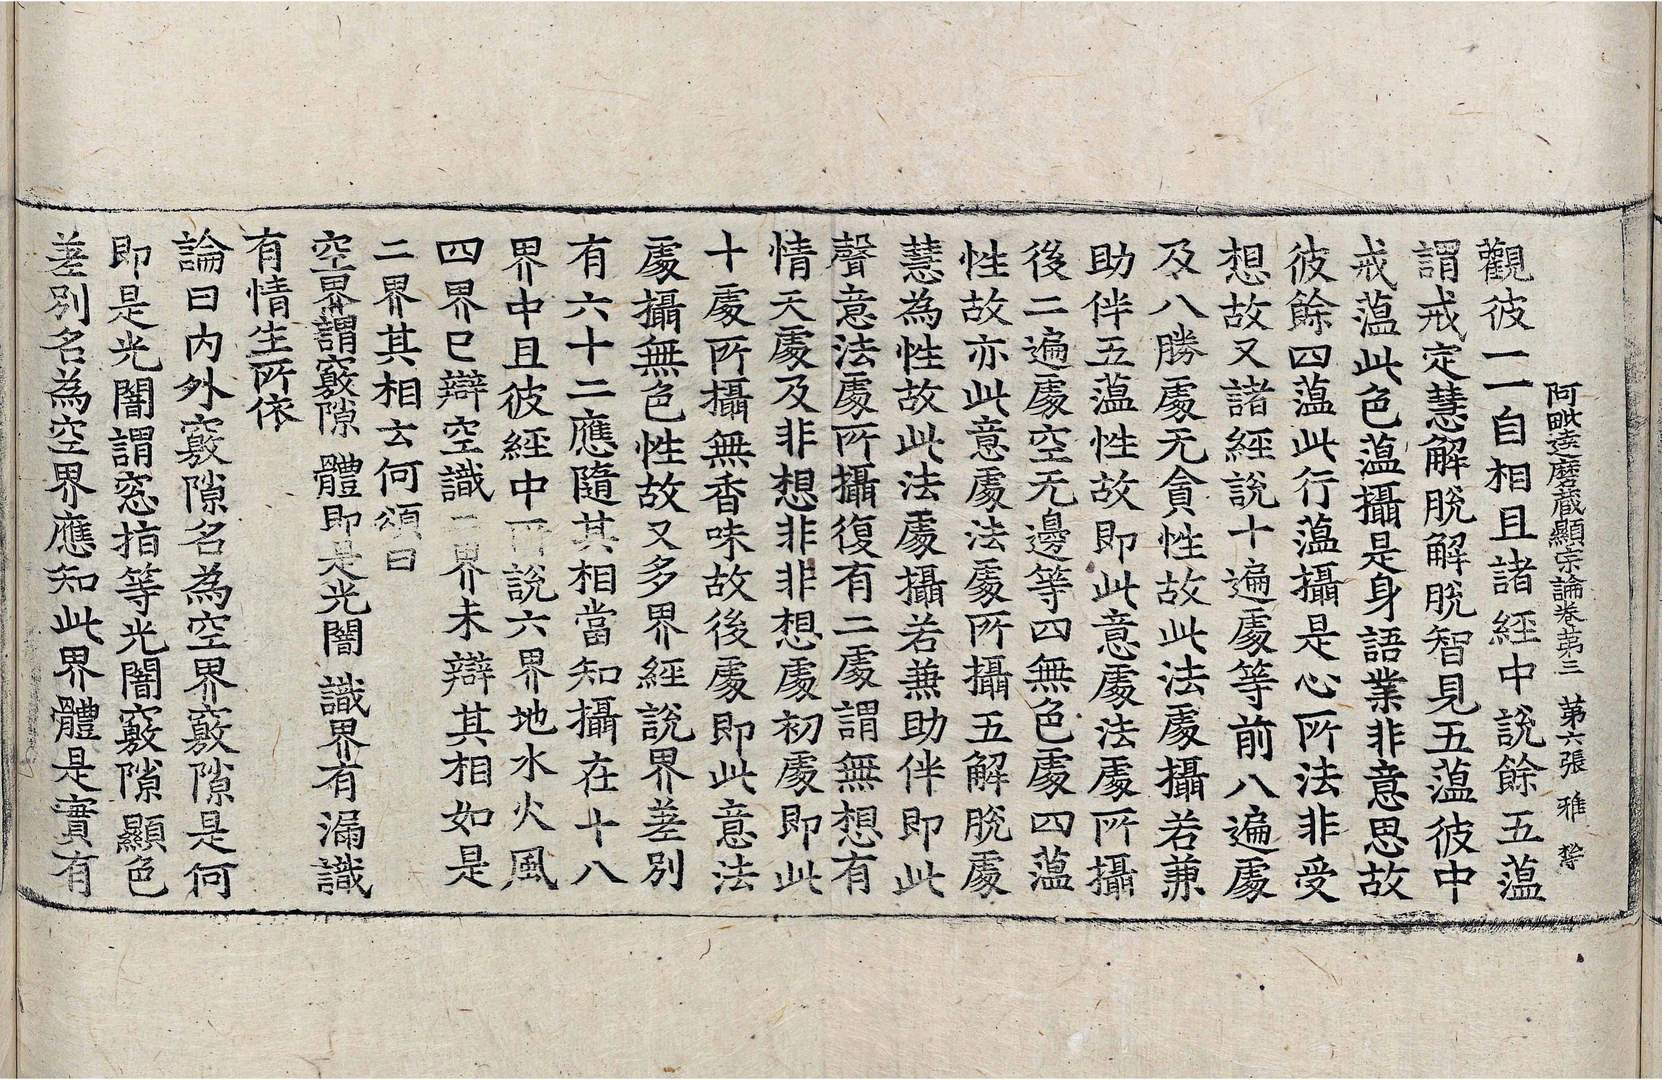 阿毗達磨藏顯宗論卷第三 第六張 雅
觀彼一一自相且諸經中說餘五蕰
謂戒定慧解脫解脫智見五蕰彼中
戒蕰此色蕰攝是身語業非意思故
彼餘四蕰此行蕰攝是心所法非受
想故又諸經說十遍處等前八遍處
及八勝處无貪性故此法處攝若兼
助伴五蕰性故即此意處法處所攝
後二遍處空无邊等四無色處四蕰
性故亦此意處法處所攝五解脫處
慧為性故此法處攝若兼助伴即此
聲意法處所攝復有二處謂無想有
情天處及非想非非想處初處即此
十處所攝無香味故後處即此意法
處攝無色性故又多界經說界差別
有六十二應隨其相當知攝在十八
界中且彼經中所說六界地水火風
四界已辯空識二界未辯其相如是
二界其相云何頌曰
空界謂竅隙 體即是光闇 識界有漏識
有情生所依
論曰內外竅隙名為空界竅隙是何
即是光闇謂窓指等光闇竅隙顯色
差別名為空界應知此界體是實有